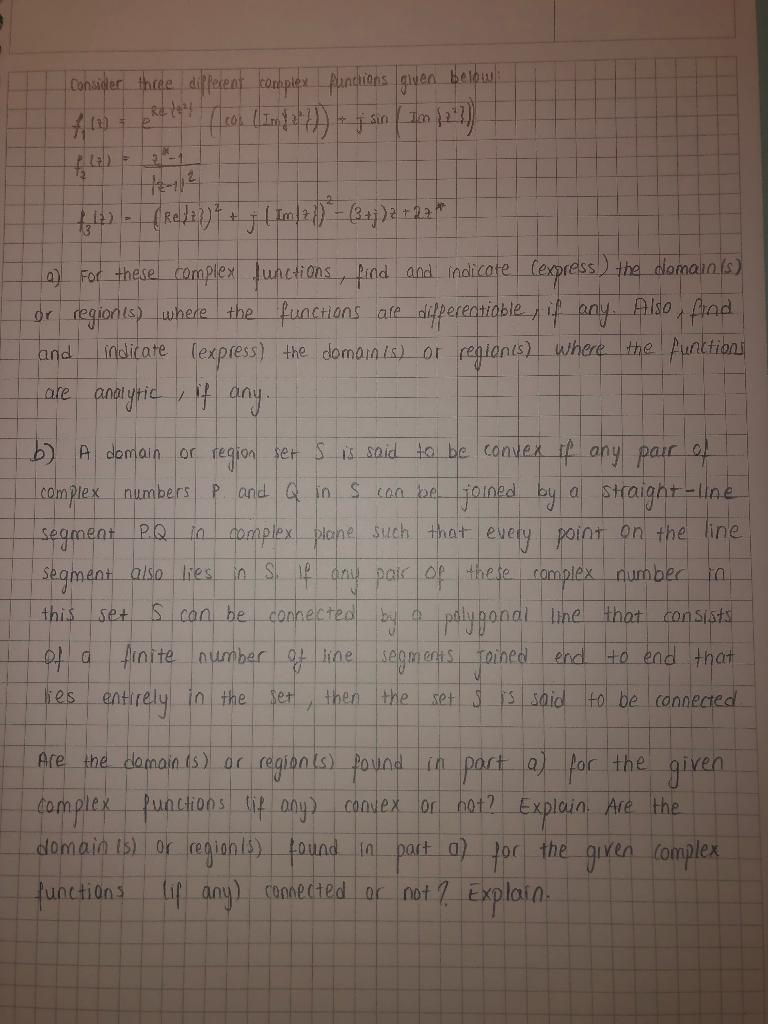 Consider three different complex functions given below:
f₁(z) = e^{Re{z²}} (cos (Im{z²})) + j sin (Im {z²}))
f₂(z) = z*-1 / |z-1|²
f₃(z) = (Re{z})² + j (Im{z})² - (3+j)z + 2z*
a) For these complex functions, find and indicate (express) the domain(s)
or region(s) where the functions are differentiable, if any. Also, find
and indicate (express) the domain(s) or region(s) where the functions
are analytic, if any.
b) A domain or region set S is said to be convex if any pair of
complex numbers P and Q in S can be joined by a straight-line
segment PQ in complex plane such that every point on the line
segment also lies in S. If any pair of these complex number in
this set S can be connected by a polygonal line that consists
of a finite number of line segments joined end to end that
lies entirely in the set, then the set S is said to be connected
Are the domain(s) or region(s) found in part a) for the given
complex functions (if any) convex or not? Explain. Are the
domain(s) or region(s) found in part a) for the given complex
functions (if any) connected or not? Explain.